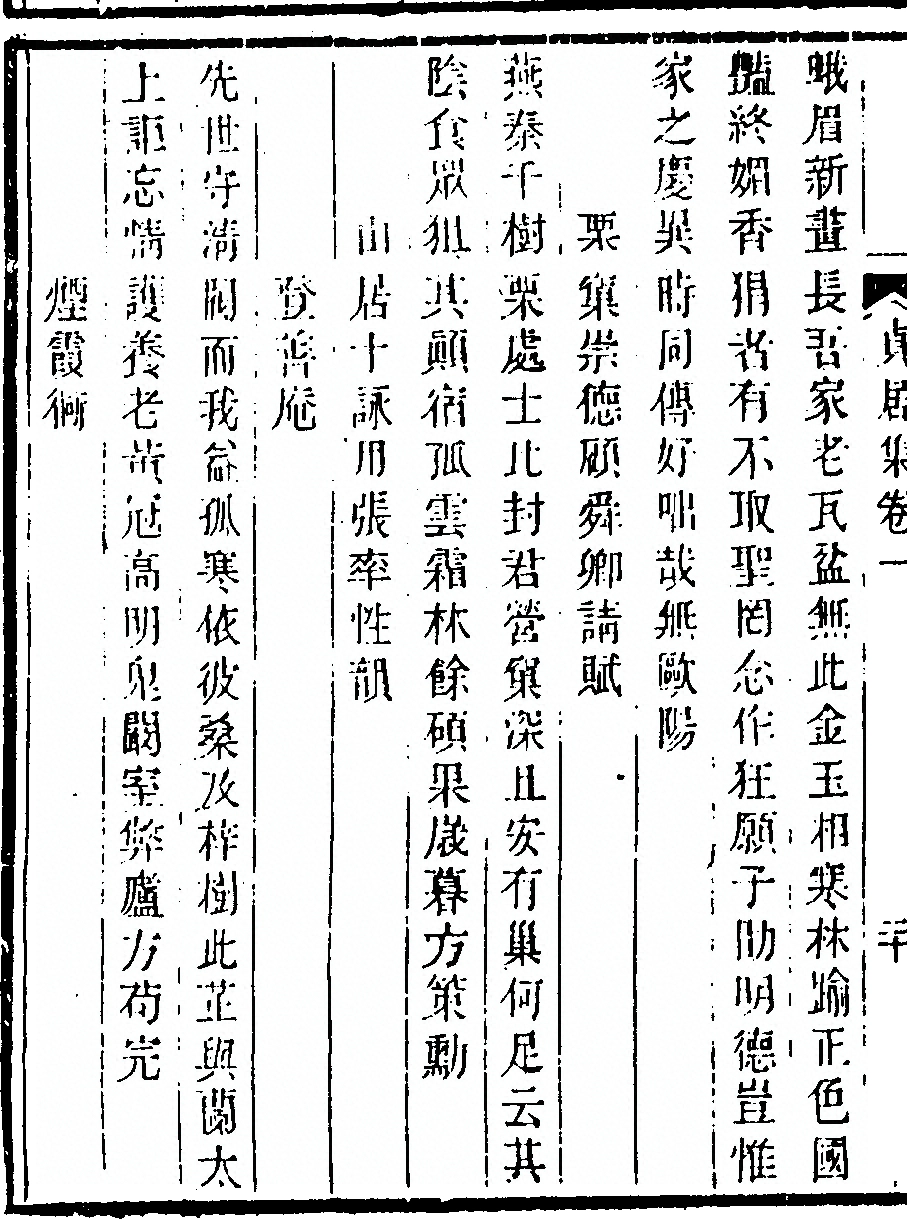 貞居集卷一
二十
蛾眉新畫長吾家老瓦盆無此金玉相寒林踰正色國
豔終媚香狷者有不取聖罔念作狂願子助明德豈惟
家之慶吳時同傳好咄哉無歐陽
栗窠崇德顧舜卿請賦
燕秦千樹栗處士比封君營窠深且安有巢何足云其
陰食眾狙其顛宿孤雲霜林餘碩果歲暮方策勳
山居十詠用張率性韻
登善庵
先世守淸閟而我益孤寒依彼桑及梓樹此芷與蘭太
上詎忘情護養老黃冠高明鬼闞室弊廬方苟完
煙霞衕